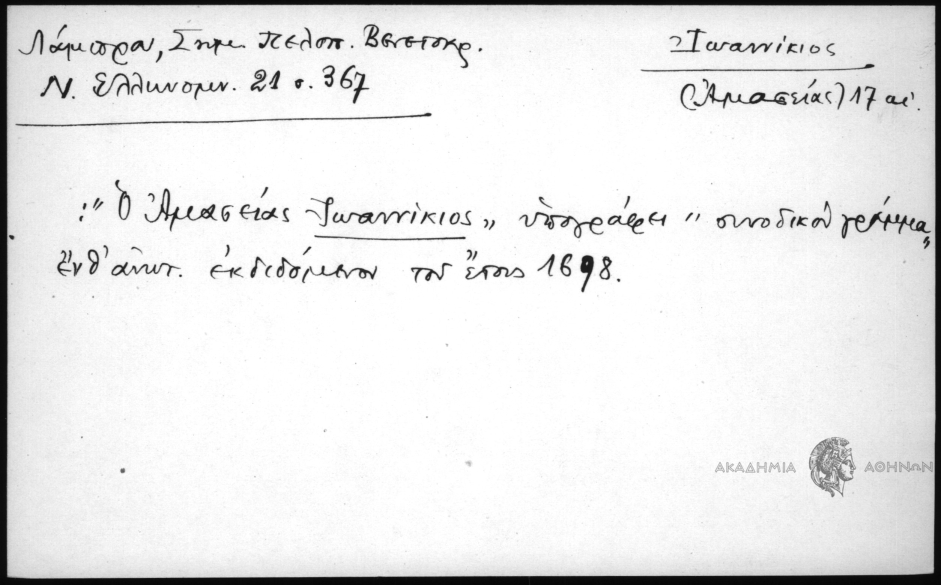 Λάμπρου, Σημ. Πελοπ. Βενετοκρ.
Ν. Ελληνομν. 21 σ. 367
Ἰωαννίκιος
(Ἀμασείας) 17 αἰ.
:" Ὁ Ἀμασείας Ἰωαννίκιος„ ὑπογράφει " συνοδικὸν γράμμα„
ἔνθ' ἀνωτ. ἐκδιδόμενον τοῦ ἔτους 1698.
ΑΚΑΔΗΜΙΑ ΑΘΗΝΩΝ